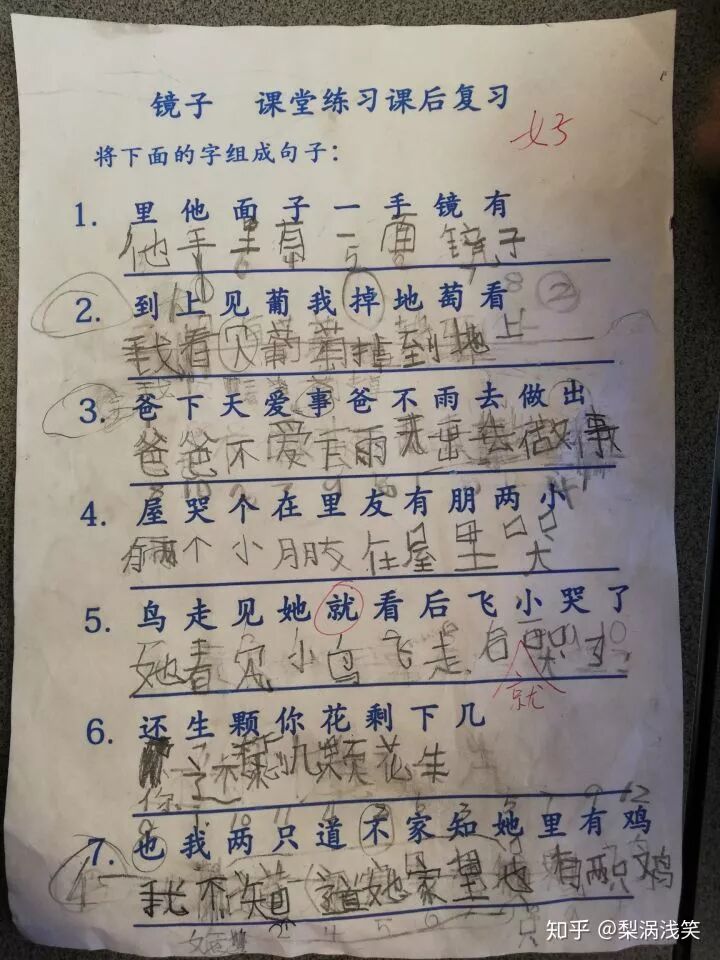 镜子 课堂练习课后复习
好
将下面的字组成句子：
1. 里他面子一手镜有
他手里有一面镜子
2. 到上见葡我掉地萄看
我看见葡萄掉到地上
3. 爸下天爱事爸不雨去做出
爸爸不爱下雨天出去做事
4. 屋哭个在里友有朋两小
有两个小朋友在屋里哭
5. 鸟走见她就看后飞小哭了
她看见小鸟飞走后哭了
就
6. 还生颗你花剩下几
你 几颗花生
7. 也我两只道不家知她里有鸡
我不知道她家里也有两只鸡
知乎 @梨涡浅笑